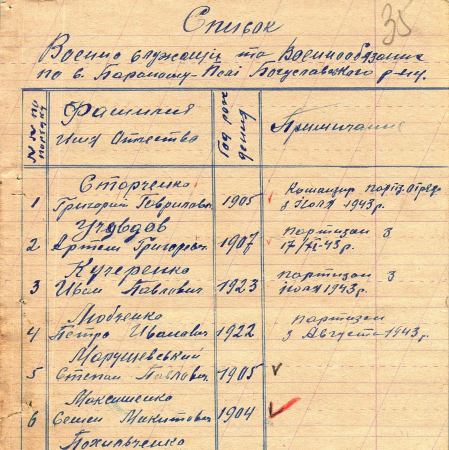 35
Список
Военно служащих та Военнообязаних
по с. Бараному-Полі Богуславского р-ну.
№ № по порядку
Фамилия
Имя Отчество
Год рождения
Примичание
Сторченко
1 Григорий Гаврилович 1905 Командир партиз. отряд
з Июля 1943 р.
2 Артем Григоров. 1907 партизан з
17/VI-43 р.
Кучеренко
3 Иван Павлович 1923 партизан з
1943 р.
Любченко
4 Петро Иванович 1922 партизан
з Августа 1943 р.
Марущевський
5 Степан Павлович 1905
Максименко
6 Семен Микитович 1904
Похильченко